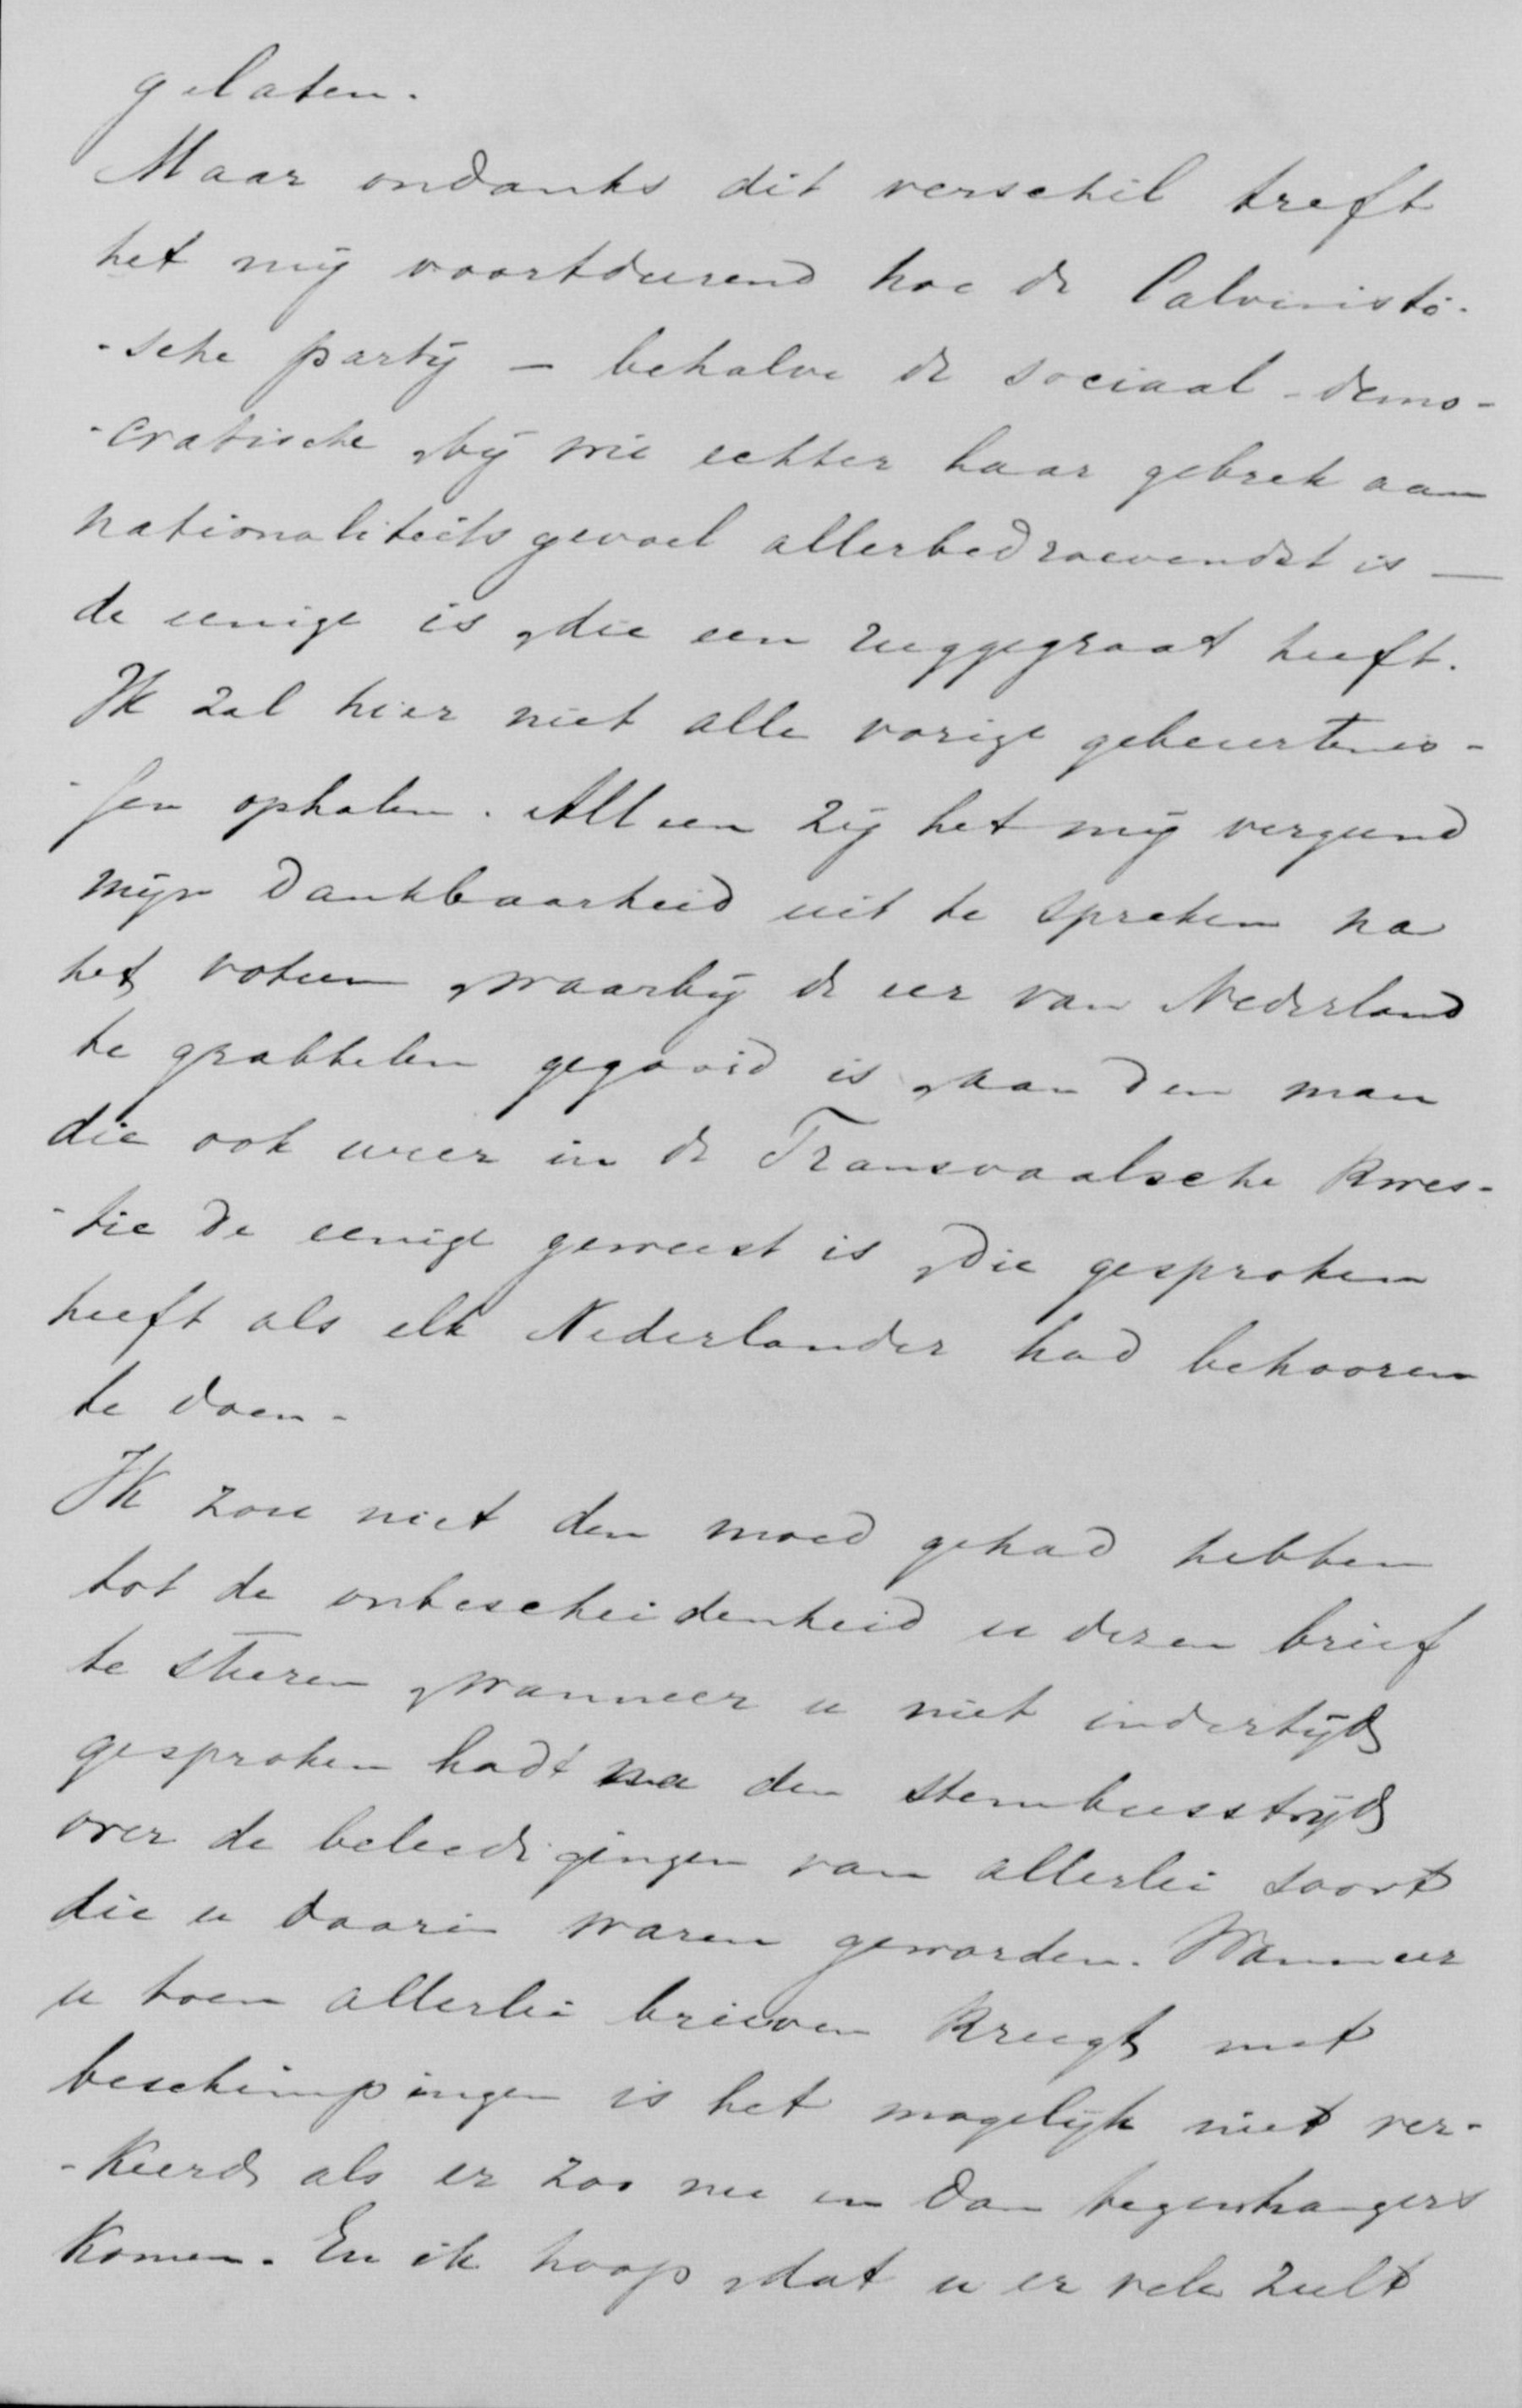 gelaten.
Maar ondanks dit verschil treft
het mij voortdurend hoe de Calvinisti-
-sche partij – behalve de sociaal-demo-
-cratische, bij wie echter haar gebrek aan
nationaliteitsgevoel allerbedroevendst is —
de eenige is, die een ruggegraat heeft.
Ik zal hier niet alle vorige gebeurtenis-
-sen ophalen. Alleen zij het mij vergund
mijn dankbaarheid uit te spreken na
het votum, waarbij de eer van Nederland
te grabbelen gegooid is, aan den man
die ook weer in de Transvaalsche kwes-
-tie de eenige geweest is, die gesproken
heeft als elk Nederlander had behooren
te doen.
Ik zou niet den moed gehad hebben
tot de onbescheidenheid u dezen brief
te sturen, wanneer u niet indertijd
gesproken hadt na den stembusstrijd
over de beleedigingen van allerlei soort
die u daarin waren geworden. Wanneer
u toen allerlei brieven kreegt met
beschimpingen is het mogelijk niet ver-
-keerd, als er zoo nu en dan tegenhangers
komen. En ik hoop, dat u er vele zult